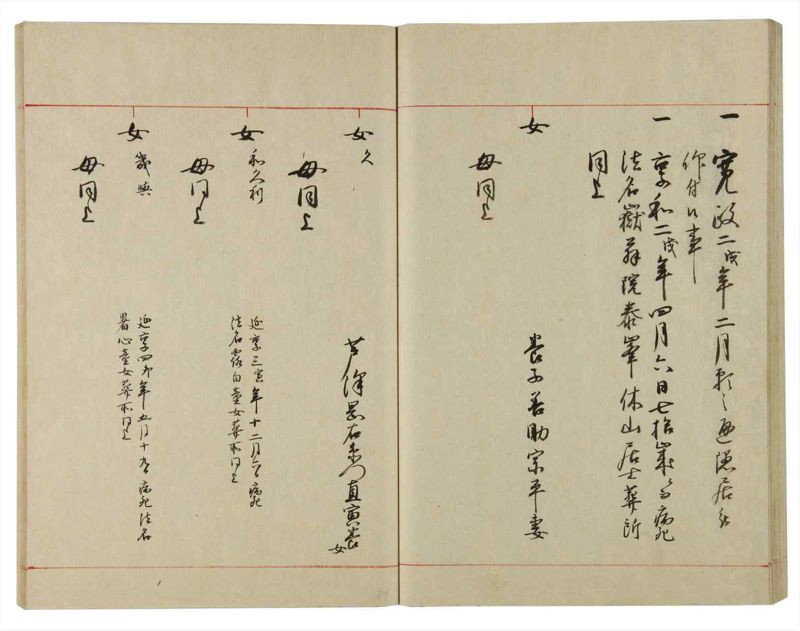 一 寛政二戌年二月願之通隠居被
仰付候事
一 享和二戌年四月六日七拾歳ニ而病死
法名嶽蒜院泰峯休山居士葬所
同上
女
母同上
養子善助宗平妻
女 久
母同上
芦澤 右衛門直寅養女
女 和久利
母同上
延享三寅年十二月六日病死
法名露白童女葬所同上
女 幾與
母同上
延享四卯年五月十九日病死法名
暑心童女葬所同上